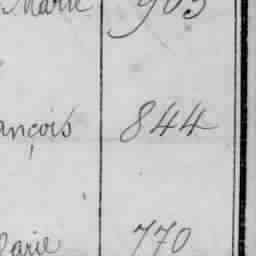 Marie 903
ançois 844
Marie 770